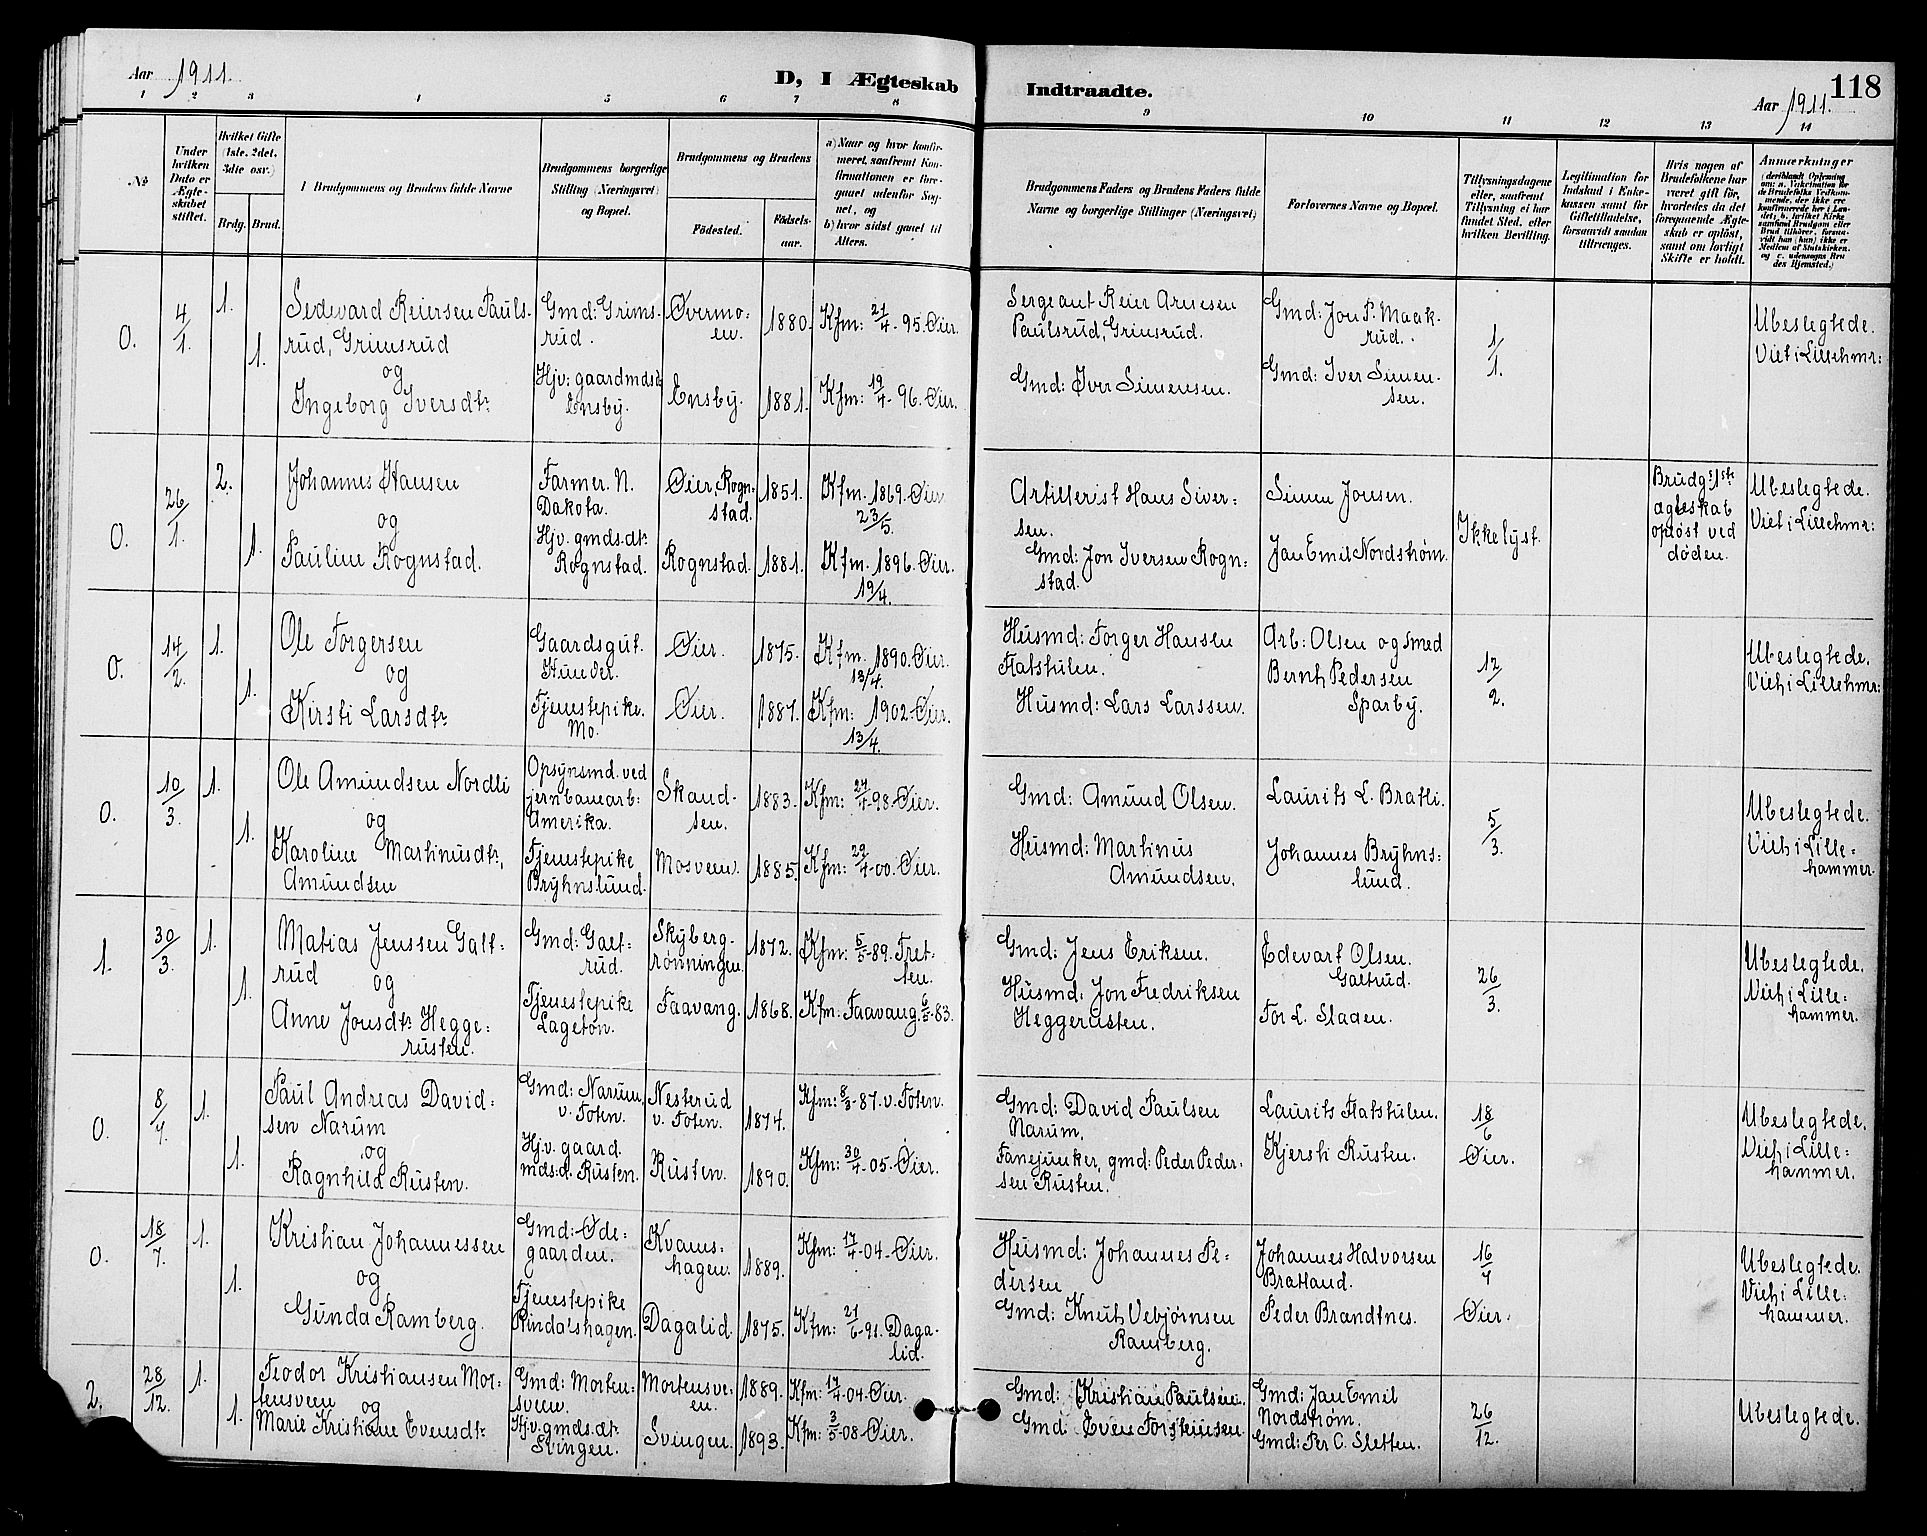 Aar 1911.
D, I Ægteskab Indtraadte.
118
Aar 1911.
1 2 3 4 5 6 7 8 9 10 11 12 13 14
№
Under hvilken Dato er Ægteskabet stiftet.
Hvilket Gifte (1ste, 2det, 3die osv.)
Brdg. Brud.
Brudgommens og Brudens fulde Navne
Brudgommens borgerlige Stilling (Næringsvei) og Bopæl.
Brudgommens og Brudens
Fødested.
Fødselsaar.
a) Naar og hvor konfirmeret, saafremt Konfirmationen er foregaaet udenfor Sognet, og
b) hvor sidst gaaet til Alters.
Brudgommens Faders og Brudens Faders fulde Navne og borgerlige Stillinger (Næringsvei)
Forlovernes Navne og Bopæl.
Tillysningsdagene eller, saafremt Tillysning ei har fundet Sted, efter hvilken Bevilling.
Legitimation for Indskud i Enkekassen samt for Giftetilladelse, forsaavidt saadan tiltrænges.
Hvis nogen af Brudefolkene har været gift før, hvorledes da det foregaaende Ægteskab er opløst, samt om lovligt Skifte er holdt.
Anmærkninger (deriblandt Oplysning om: a. Vaccination for de Brudefolks Vedkommende, der ikke ere konfirmerede her i Landet; b. hvilket Kirkesamfund Brudgom eller Brud tilhører, forsaavidt han (hun) ikke er Medlem af Statskirken, og c. udensogns Brudes Hjemsted.)
0. 4/1. 1. 1.
Sedevard Reiersen Paulsrud, Grimsrud
og
Ingeborg Iversdtr
Gmd: Grimsrud.
Hjv: gaardmdsd. Ensby.
Øvermoen 1880. Kfm: 21/4-95. Øier.
Ensby. 1881. Kfm: 19/4-96. Øier.
Sergeant Reier Arnesen Paulsrud, Grimsrud.
Gmd: Iver Simensen.
Gmd: Jon P. Maakrud.
Gmd: Iver Simensen.
1/1.
Ubeslegtede.
Viet i Lillehmr:
0. 26/1. 2. 1.
Johannes Hansen
og
Pauline Rognstad.
Farmer. N. Dakota.
Hjv. gmds.dtr. Rognstad.
Øier, Rognstad. 1851. Kfm. 1869. Øier 23/5.
Rognstad. 1881. Kfm. 1896. Øier. 19/4.
Artillerist Hans Siversen.
Gmd: Jon Iversen Rognstad.
Simen Jonsen.
Jan Emil Nordstrøm.
Ikke lyst.
Brudg: 1ste ægteskab opløst ved døden.
Ubeslegtede.
Viet i Lillehmr:
0. 14/2. 1. 1.
Ole Torgersen
og
Kirsti Larsdtr
Gaardsgut. Hunder.
Tjenestepike. Mo.
Øier. 1875. Kfm. 1890. Øier. 13/4.
Øier. 1887. Kfm: 1902. Øier. 13/4.
Husmd: Torger Hansen Flatstulen.
Husmd: Lars Larssen.
Arb: Olsen og smed
Bernt Pedersen Sparby.
12/2.
Ubeslegtede.
Viet i Lillehmr:
0. 10/3. 1. 1.
Ole Amundsen Nordli
og
Karoline Martinusdtr, Amundsen
Opsynsmd. ved jernbanearb: Amerika.
Tjenestepike Bryhnslund.
Skandsen. 1883. Kfm: 24/4-98. Øier.
Mosveen. 1885. Kfm: 29/4-00. Øier.
Gmd: Amund Olsen.
Husmd: Martinus Amundsen.
Laurits L. Bratli.
Johannes Bryhnslund.
5/3.
Ubeslegtede.
Viet i Lillehammer.
1. 30/3. 1. 1.
Matias Jenssen Galtrud
og
Anne Jonsdtr Heggerusten.
Gmd: Galtrud.
Tjenestepike Lageton.
Skybergrønningen. 1872. Kfm: 5/5-89. Tretten.
Faavang. 1868. Kfm: Faavang. 6/5-83.
Gmd: Jens Eriksen.
Husmd: Jon Fredriksen Heggerusten.
Edevart Olsen. Galtrud.
Tor L. Sladen.
26/3.
Ubeslegtede.
Viet i Lillehammer.
0. 8/7. 1. 1.
Paul Andreas Davidsen Narum
og
Ragnhild Rusten.
Gmd: Narum, v. Toten.
Hjv. gaardmds:d. Rusten.
Nesterud v. Toten. 1874. Kfm: 8/3-87. v. Toten.
Rusten. 1890. Kfm: 30/4-05. Øier.
Gmd: David Paulsen Narum.
Fanejunker, gmd: Peder Pedersen Rusten.
Laurits Flatstulen.
Kjersti Rusten.
18/6
Øier.
Ubeslegtede.
Viet i Lillehammer.
0. 18/7. 1. 1.
Kristian Johannessen
og
Gunda Ramberg.
Gmd: Ødegaarden.
Tjenestepike Rindalshagen.
Kvamshagen. 1889. Kfm: 17/4-04. Øier.
Dagalid. 1875. Kfm: 21/6-91. Dagalid.
Husmd: Johannes Pedersen
Gmd: Knut Vebjørnsen Ramberg.
Johannes Halvorsen Bratland.
Peder Brandtnes.
16/7
Øier.
Ubeslegtede.
Viet i Lillehammer.
2. 28/12. 1. 1.
Teodor Kristiansen Mortensveen
og
Marie Kristiane Evensdtr
Gmd: Mortensveen.
Hjv. gmds.dtr Svingen.
Mortensveen. 1889. Kfm: 17/4-04. Øier.
Svingen. 1893. Kfm: 3/5-08. Øier.
Gmd: Kristian Paulsen.
Gmd: Even Torsteinsen.
Gmd: Jan Emil Nordstrøm.
Gmd: Per C. Sletten.
26/12.
Ubeslegtede.